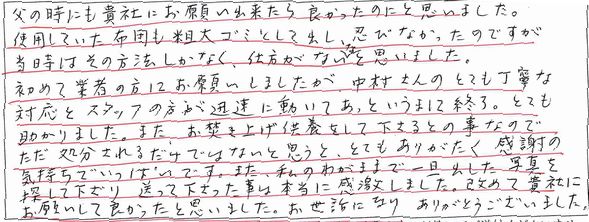 父の時にも貴社にお願い出来たら良かったのにと思いました。
使用していた布団も粗大ゴミとして出し、忍びなかったのですが
当時はその方法しかなく、仕方がないと思いました。
初めて業者の方にお願いしましたが、中村さんのとても丁寧な
対応とスタッフの方が迅速に動いてあっというまに終了。とても
助かりました。また、お焚き上げ供養をして下さるとの事なので
ただ処分されるだけではないと思うと、とてもありがたく感謝の
気持ちでいっぱいです。また、私のわがままで一旦出した写真を
探して下さり 送って下さった事は本当に感激しました。改めて貴社に
お願いして良かったと思いました。お世話になり ありがとうございました。